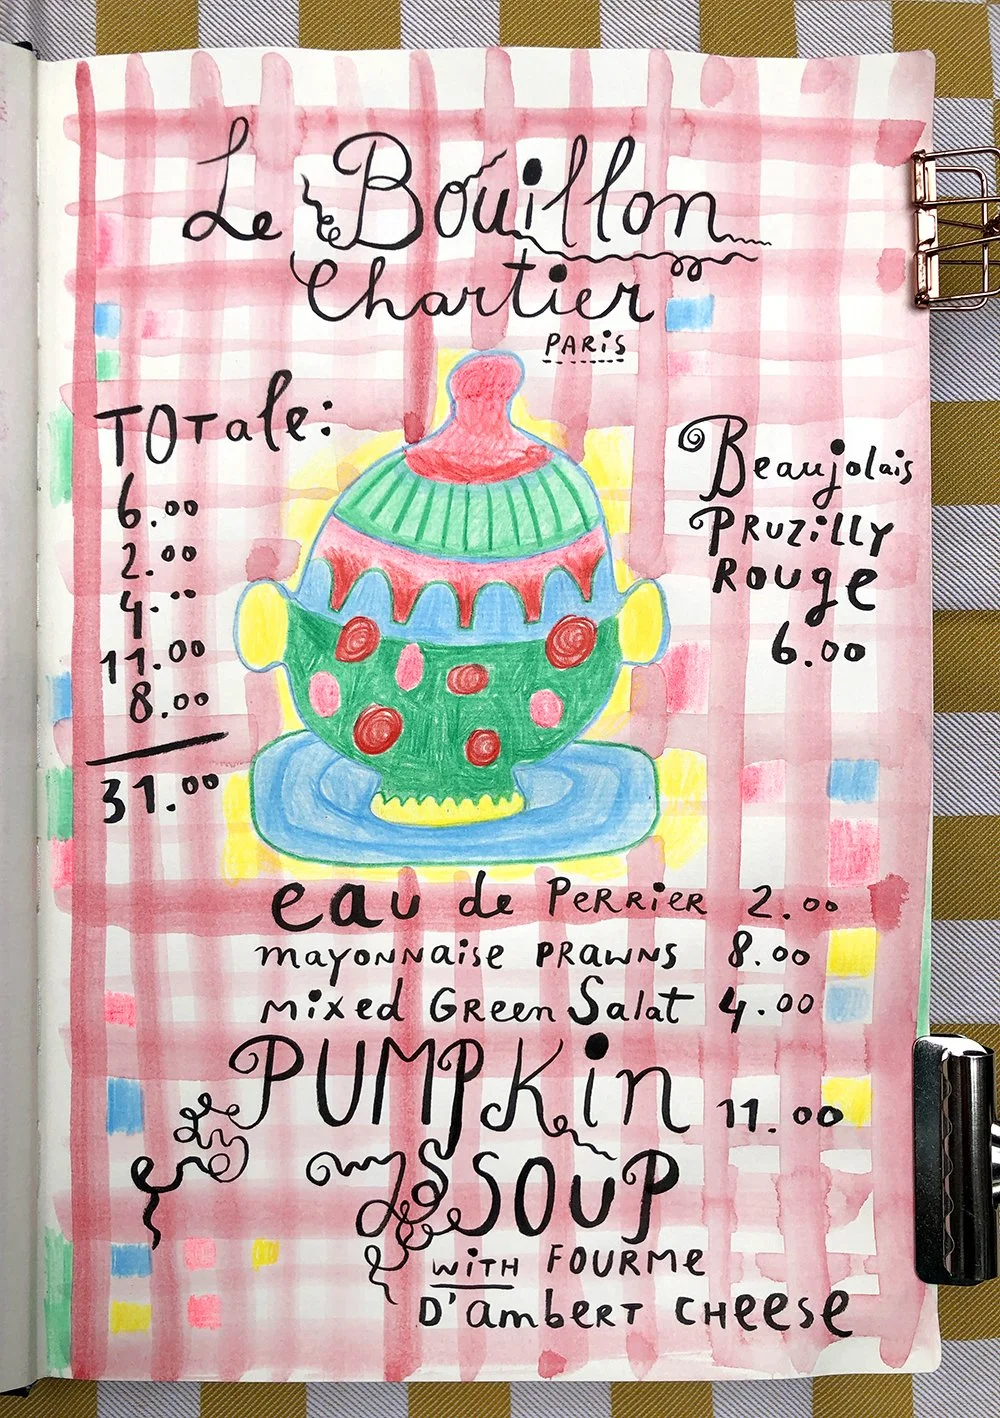 Le Bouillon
Chartier
PARiS
TOTale:
6.00
2.00
4.00
11.00
8.00
31.00
Beaujolais
PRUZiLLY
ROUge
6.00
eau de PERRiER 2.00
mayonnaise PRAWNS 8.00
mixed GReen Salat 4.00
PUMPKin 11.00
SOUP
WiTH FOURMe
D'ambeRT CHeese